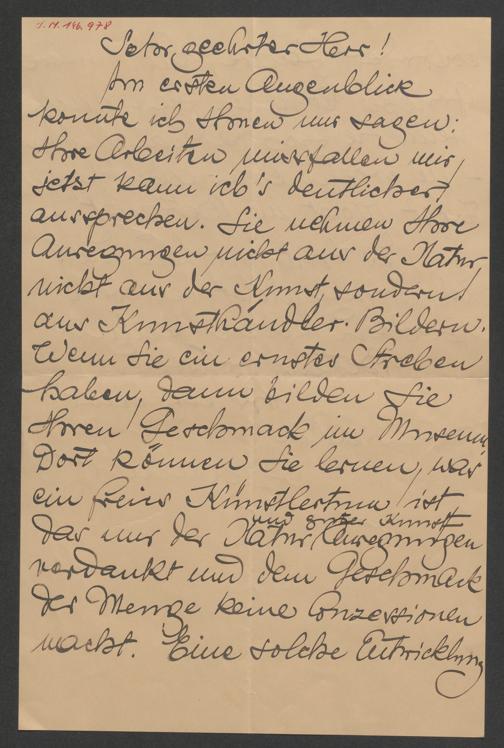 J.N. 146.978
Sehr geehrter Herr!
Im ersten Augenblick
konnte ich Ihnen nur sagen:
Ihre Arbeiten missfallen mir,
jetzt kann ich's deutlicher
aussprechen. Sie nehmen Ihre
Anregungen nicht aus der Natur,
nicht aus der Kunst, sondern
aus Kunsthändler-Bildern.
Wenn Sie ein ernstes Streben
haben, dann bilden Sie
Ihren Geschmack im Museum.
Dort können Sie lernen, was
ein freies Künstlertum ist
und guter Kunst
das nur der Natur Anregungen
verdankt und dem Geschmack
der Menge keine Conzessionen
macht. Eine solche Entwicklung